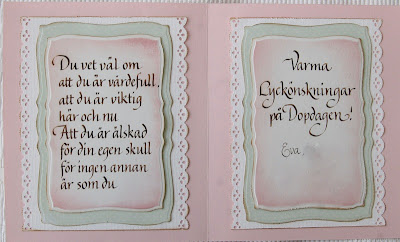 Du vet väl om
att du är värdefull,
att du är viktig
här och nu
Att du är älskad
för din egen skull
för ingen annan
är som du
Varma
Lyckönskningar
på Dopdagen!
Eva,